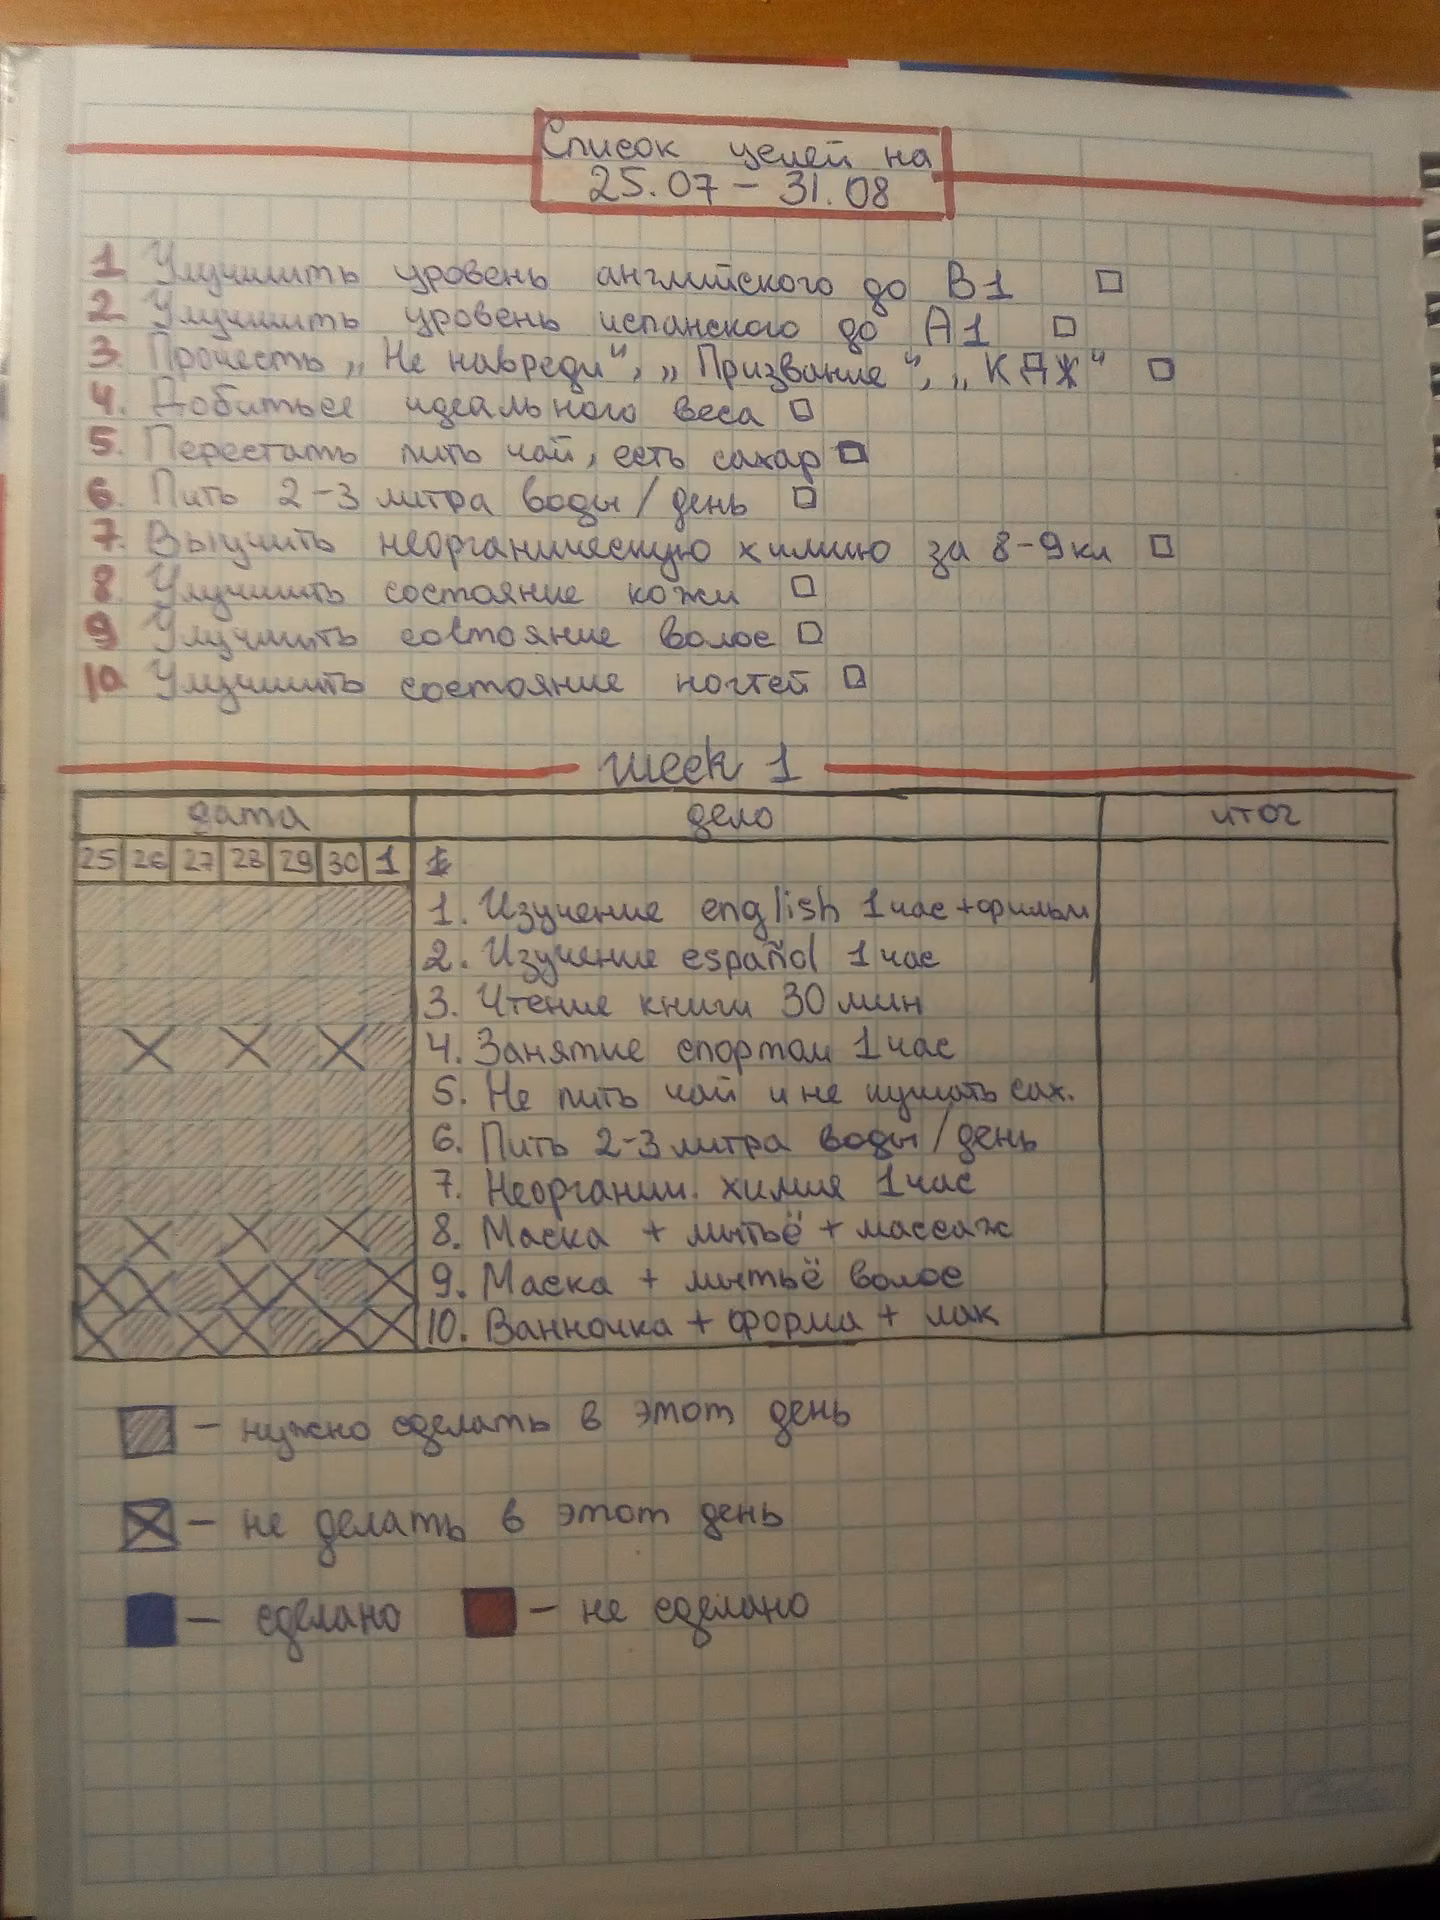 Список целей на
25.07 – 31.08
1 Улучшить уровень английского до B1
2 Улучшить уровень испанского до A1
3. Прочесть „Не навреди“, „Призвание“, „КДЖ“
4. Добиться идеального веса
5. Перестать пить чай, есть сахар
6. Пить 2-3 литра воды/день
7. Выучить неорганическую химию за 8-9кл
8. Улучшить состояние кожи
9 Улучшить состояние волос
10 Улучшить состояние ногтей
week 1
дата дело итог
25 26 27 28 29 30 1
1. Изучение english 1 час + фильм
2. Изучение español 1 час
3. Чтение книги 30 мин
4. Занятие спортом 1 час
5. Не пить чай и не кушать сах.
6. Пить 2-3 литра воды/день
7. Неорганич. химия 1 час
8. Маска + мытьё + массаж
9. Маска + мытьё волос
10. Ванночка + форма + лак
– нужно сделать в этот день
– не делать в этот день
– сделано – не сделано